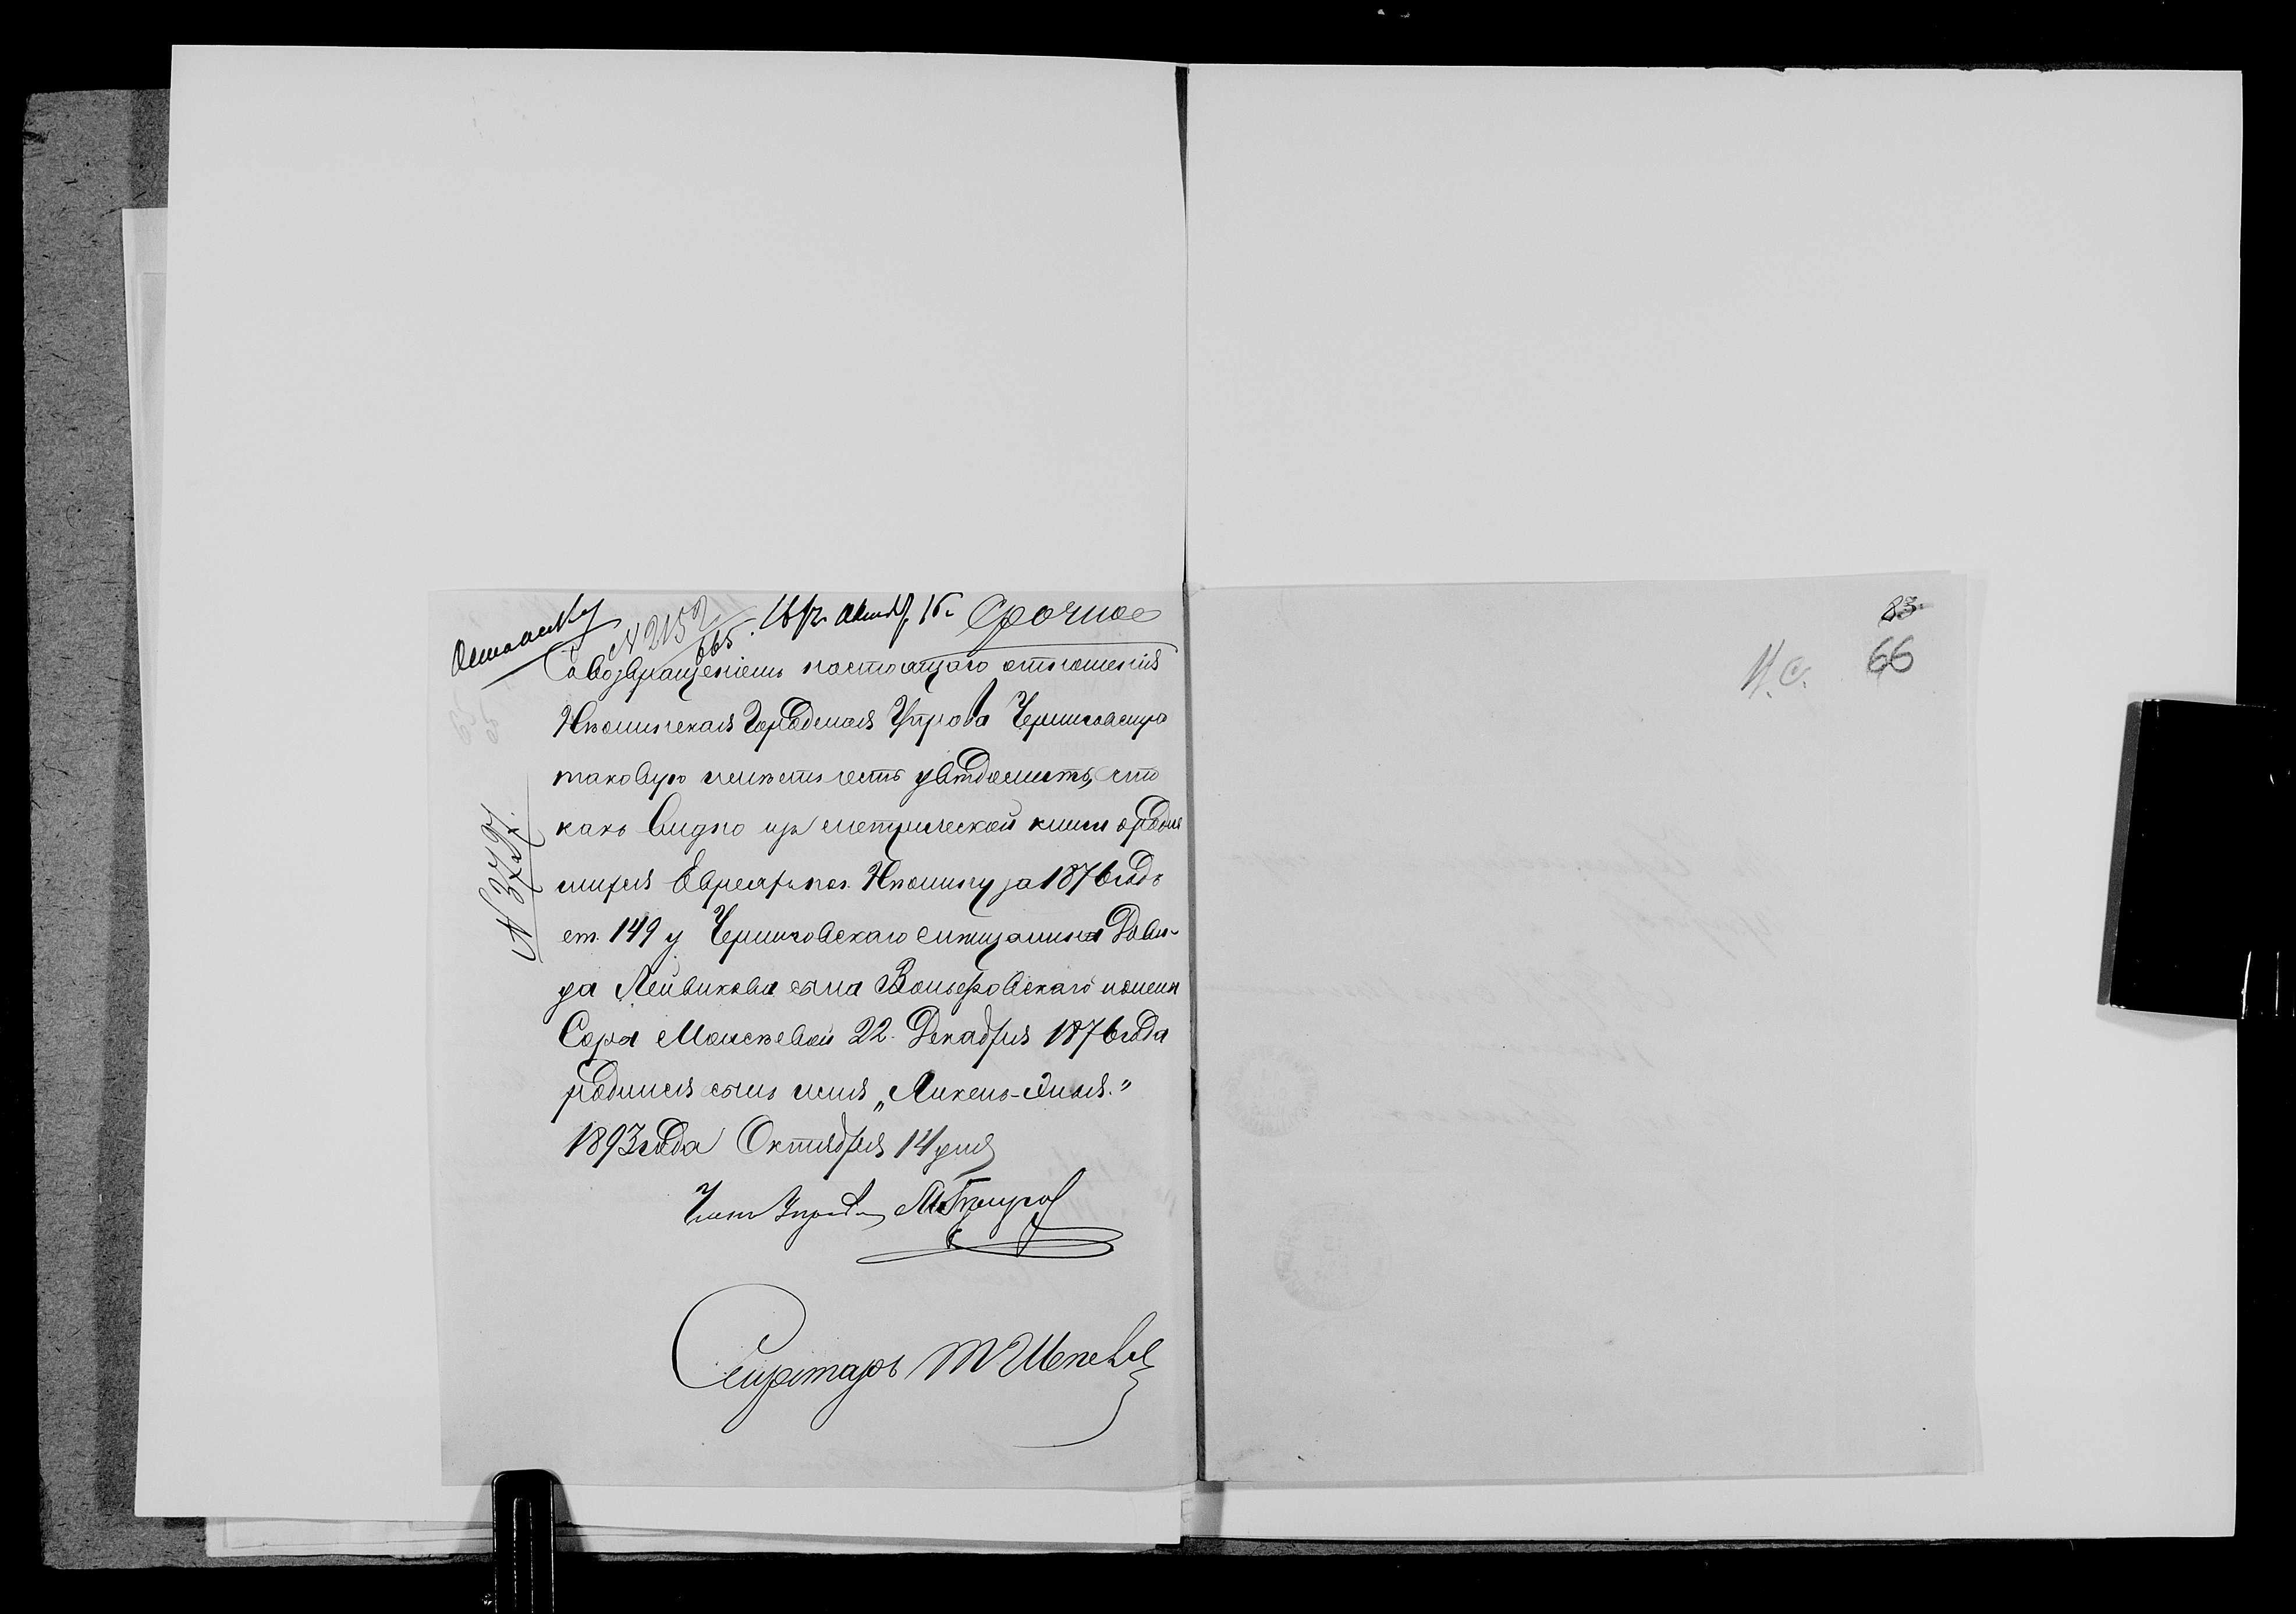 № 2152
665
Срочное
Съ возвращеніемъ настоящаго отношенія
Нѣжинская Городская Управа Черниговскую
таковую имѣетъ честь увѣдомить, что
какъ видно изъ метрической книги о родив
шихся Евреяхъ по г. Нѣжину за 1876 годъ
ст. 149 у Черниговскаго мѣщанина Дави-
да Лейвикова сына жены
Сора Моисѣевой 22 Декабря 1876 года
родился сынъ имя
1893 года Октября 14 дня
Членъ Управы
Секретарь
№ 3779
83
66
Н. С.